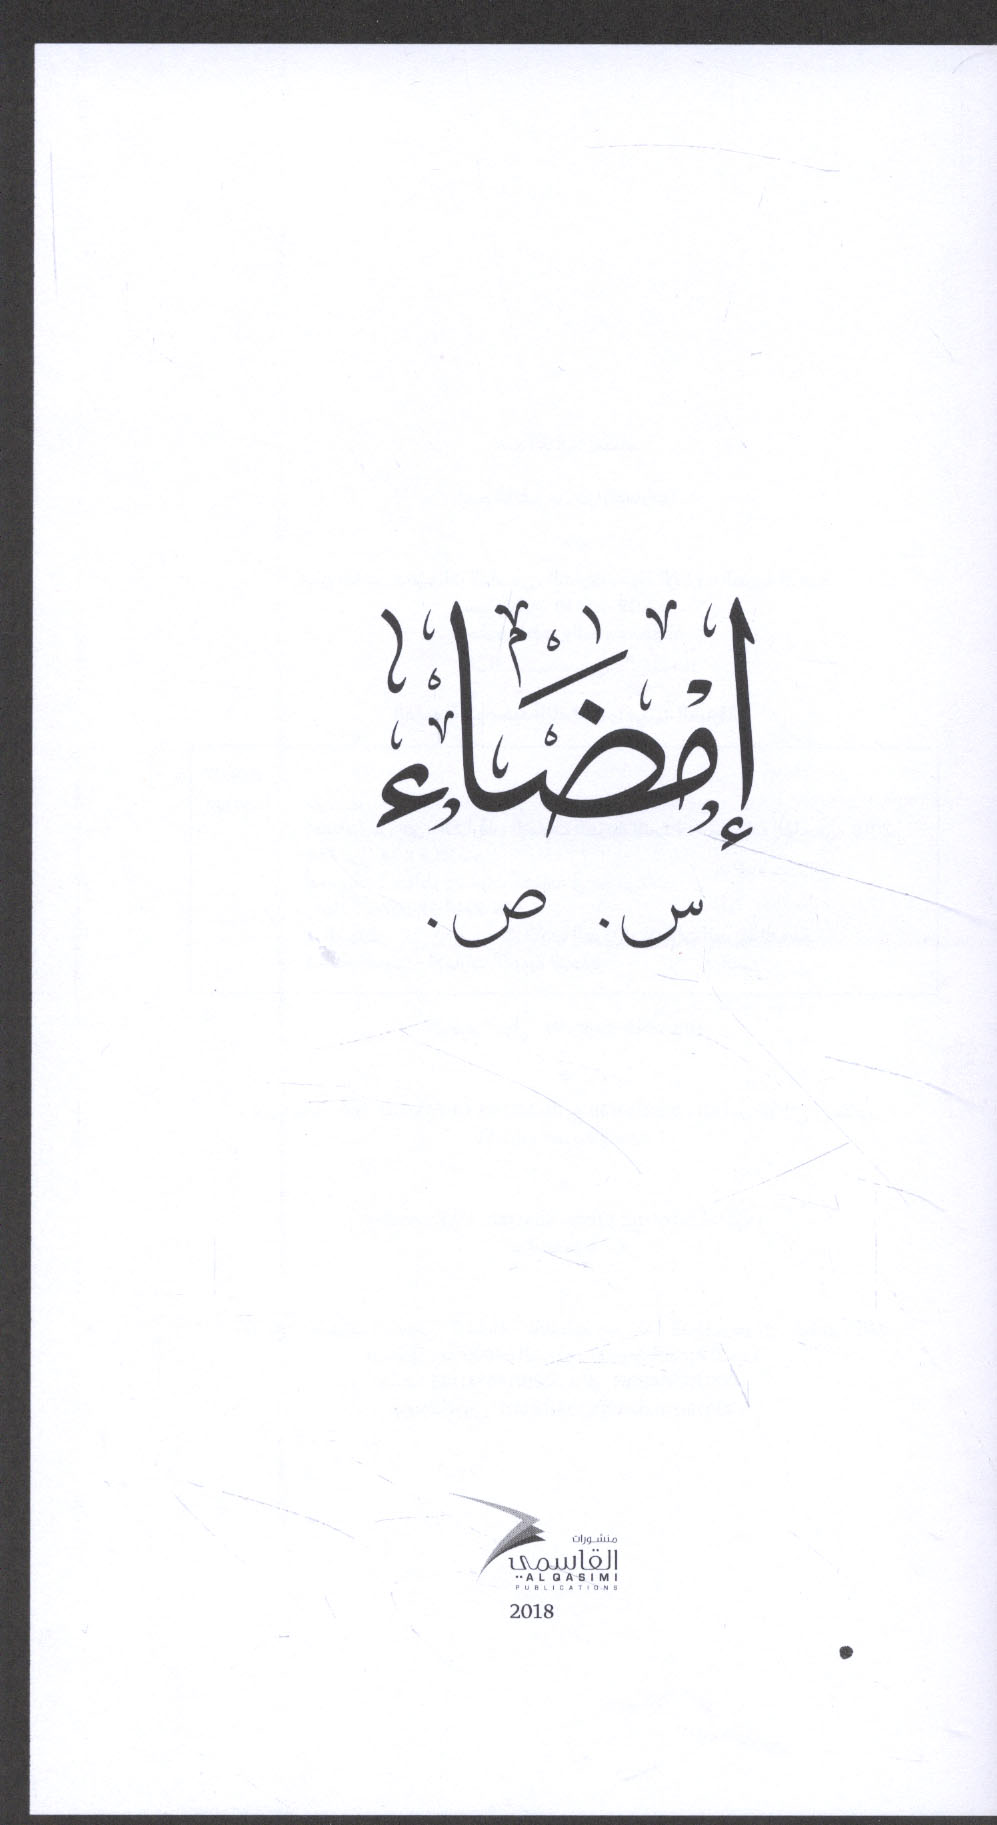 إمضاء
س. ص.
منشورات
القاسمي
AL QASIMI
PUBLICATIONS
2018